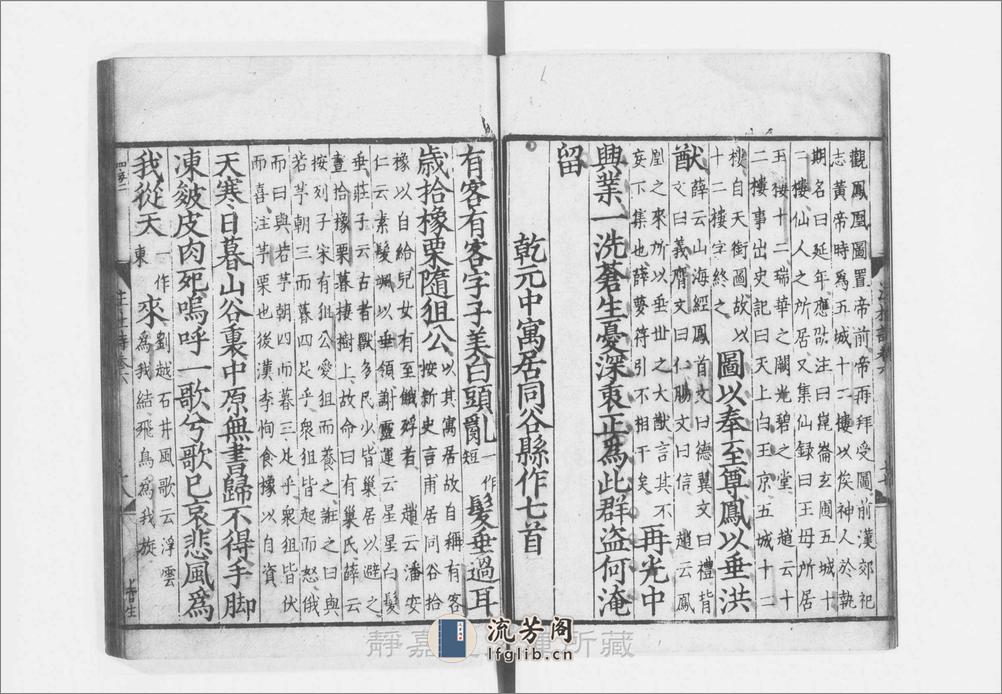 觀鳳凰圖置帝前帝再拜受圖前漢郊祀
志黃帝時爲五城十二樓以俟神人於執
期名曰延年應劭注曰崑崙玄圃五城十
二樓仙人之所居又集仙錄曰王母所居
玉樓十二瑞華之闕光碧之堂 趙云十
二樓事出史記曰天上白玉京五城十二
樓自天衢圖故以
十二樓字終之
圖以奉至尊鳳以垂洪
猷
薛云山海經鳳首文曰德翼文曰禮背
文曰義膺文曰仁腸文曰信 趙云鳳
凰之來所以垂世之大猷言其不
妄下集也薛夢得引不相干矣
再光中
興業一洗蒼生憂深衷正爲此群盜何淹
留
乾元中寓居同谷縣作七首
有客有客字子美白頭亂
一作
短
髮垂過耳
歲拾橡栗隨狙公
以其寓居故自稱有客
按新史言甫居同谷拾
橡以自給兒女有至餓殍者 趙云潘安
仁云素髮颯以垂領謝靈運云星星白髮
垂莊子云古者獸多民少皆巢居以避之
晝拾橡栗暮棲樹上故命曰有巢氏薛云
按列子宋有狙公愛狙而養之誑之曰與
若芧朝三而暮四足乎衆狙皆起而怒俄
而曰與若芧朝四而暮三足乎衆狙皆伏
而喜注芧栗也後漢李恂食橡以自資
天寒日暮山谷裏中原無書歸不得手脚
凍皴皮肉死嗚呼一歌兮歌已哀悲風爲
我從天
一作
東
來
劉越石井風歌云浮雲
爲我結飛鳥爲我旋
靜嘉
所藏
流芳阁
lfglib.cn